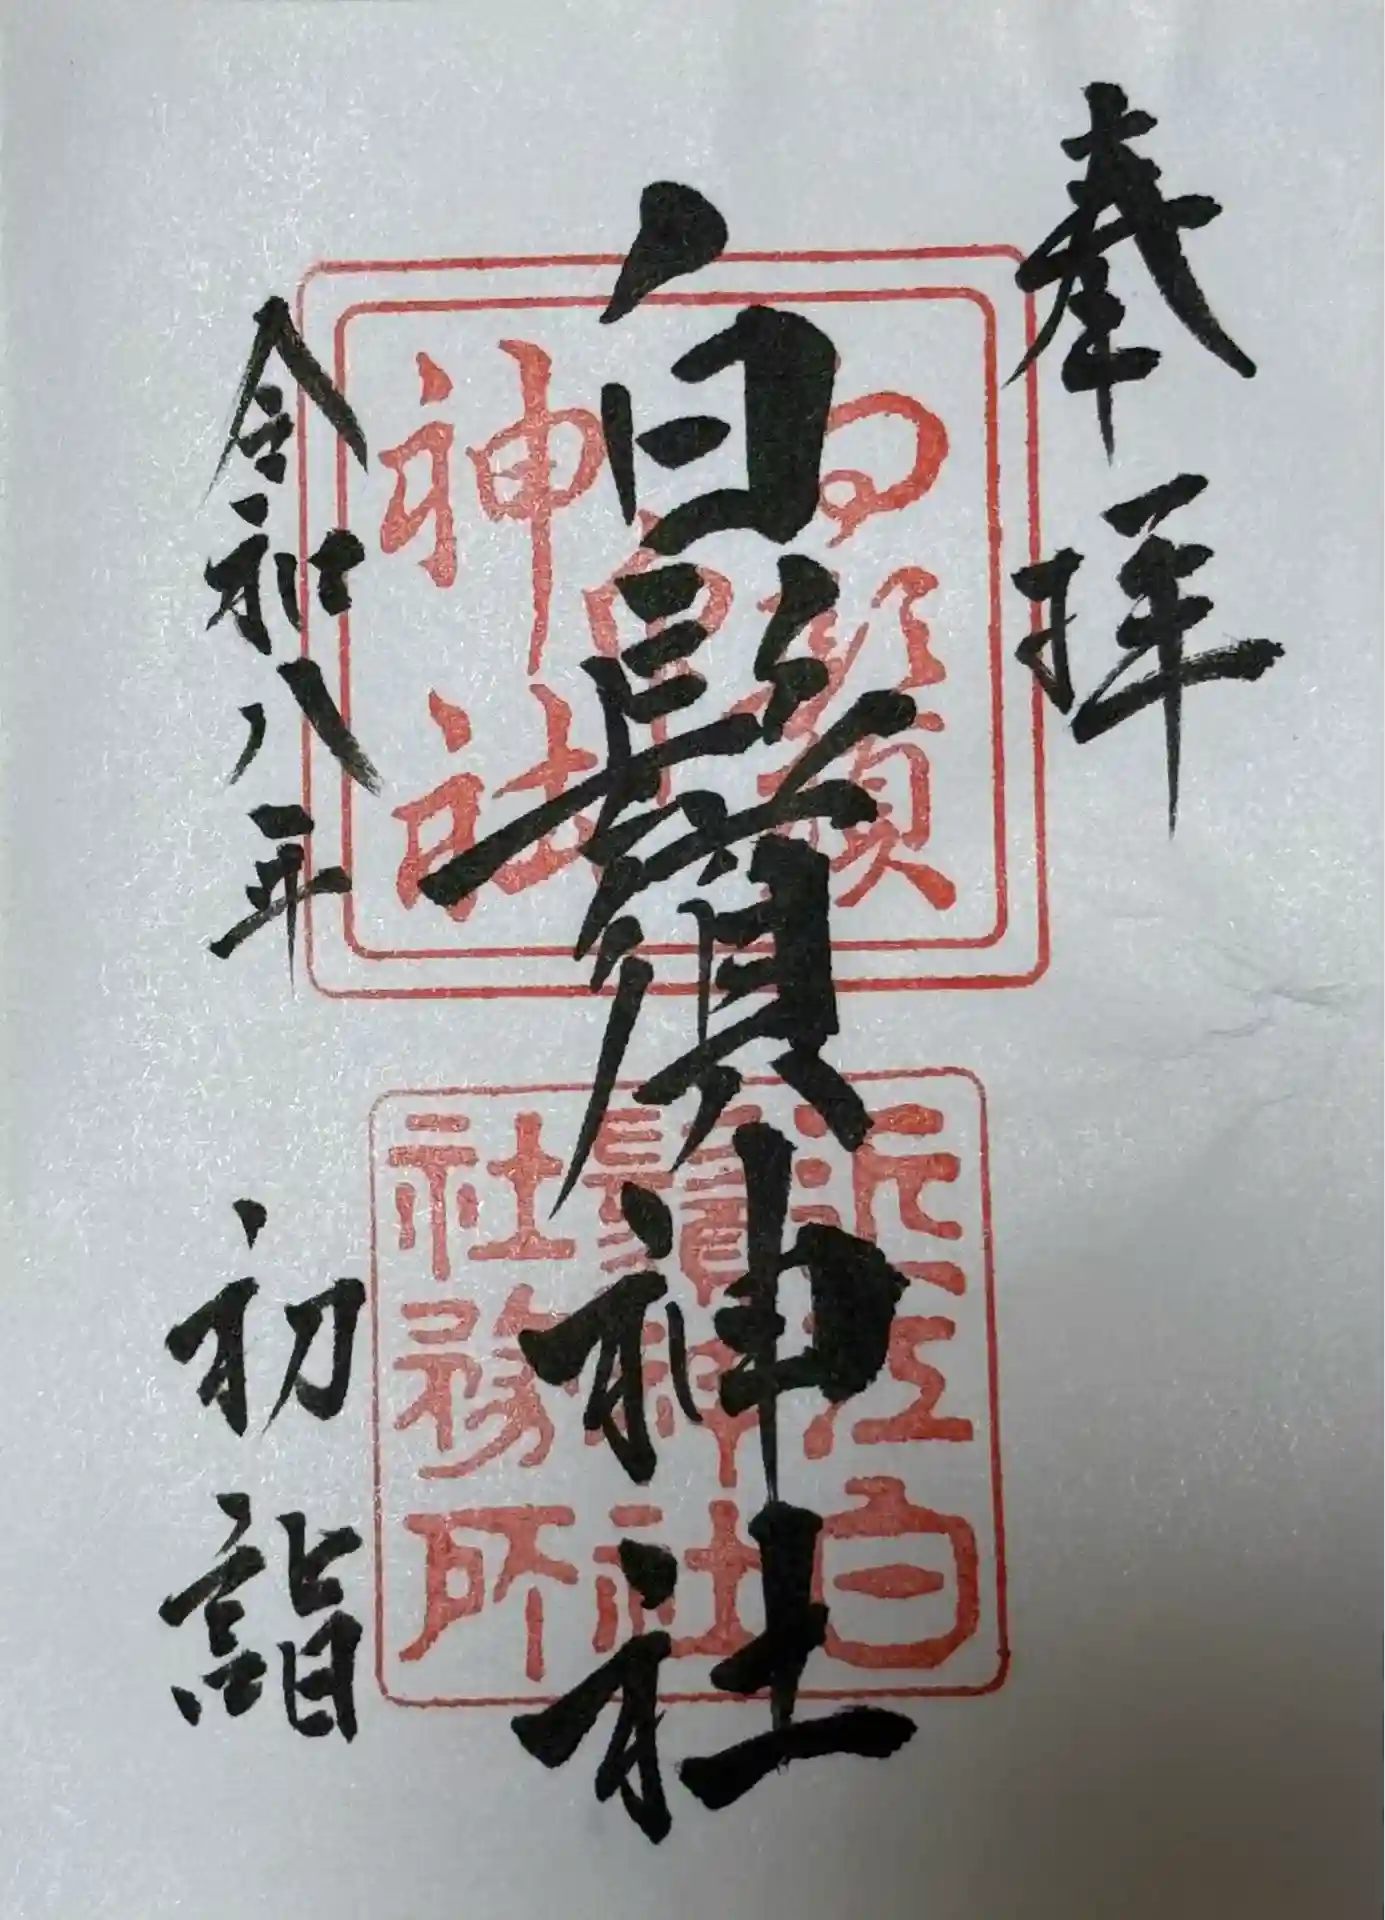 奉拝
白鬚神社
令和八年 初詣
近江白
鬚神社
社務所